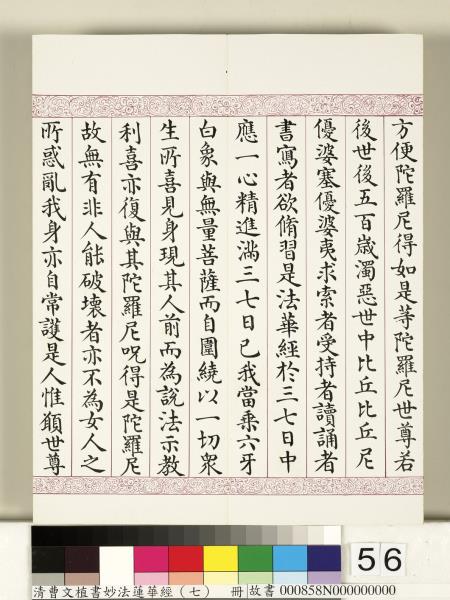 方便陀羅尼得如是等陀羅尼世尊若
後世後五百歲濁惡世中比丘比丘尼
優婆塞優婆夷求索者受持者讀誦者
書寫者欲脩習是法華經於三七日中
應一心精進滿三七日已我當乘六牙
白象與無量菩薩而自圍繞以一切衆
生所喜見身現其人前而為說法示教
利喜亦復與其陀羅尼呪得是陀羅尼
故無有非人能破壞者亦不為女人之
所惑亂我身亦自常護是人惟願世尊
56
清曹文植書妙法蓮華經(七) 冊 故書 000858N000000000